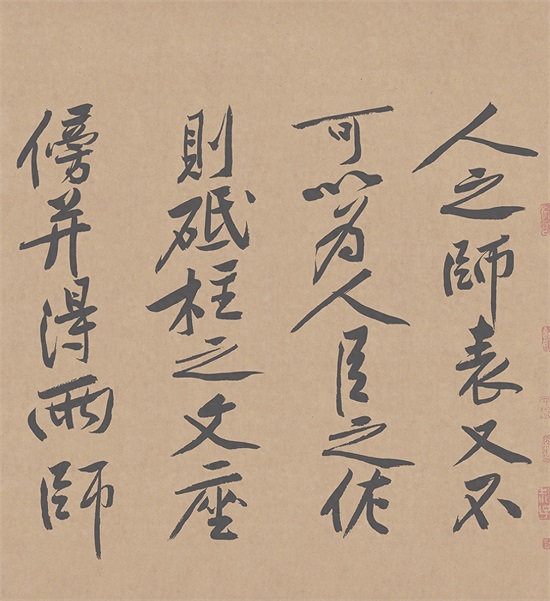 人之師表又不
可以為人臣之佐
則砥柱之文座
傍并得兩師